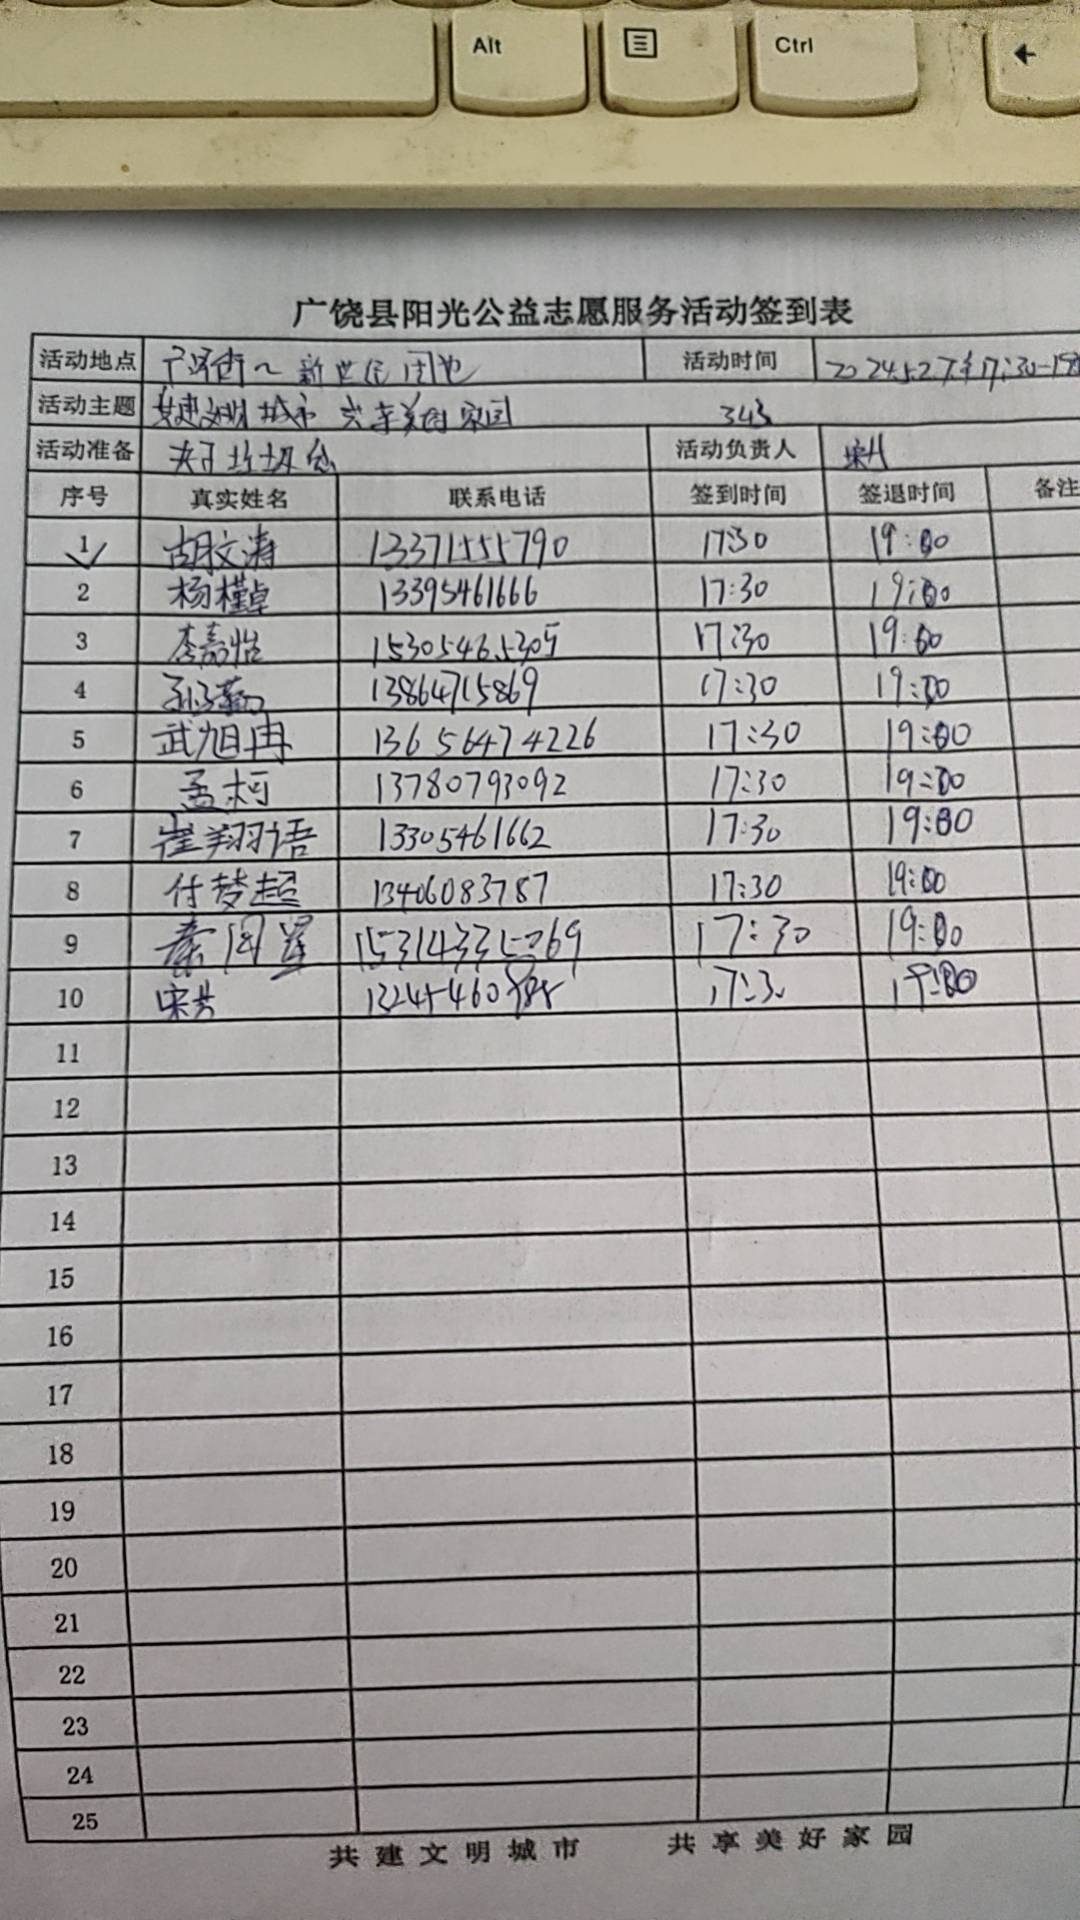 Alt Ctrl
广饶县阳光公益志愿服务活动签到表
活动地点 新世纪 活动时间 2024.5.27 17:30-19
活动主题 共建文明城市 共享美好家园 343
活动准备 夹子 垃圾袋 活动负责人
序号 真实姓名 联系电话 签到时间 签退时间 备注
1 胡文涛 13371555790 17:30 19:00
2 杨槿卓 13395461666 17:30 19:00
3 李嘉怡 15305465305 17:30 19:00
4 13864715869 17:30 19:00
5 武旭冉 13656474226 17:30 19:00
6 孟柯 13780793092 17:30 19:00
7 崔翔语 13305461662 17:30 19:00
8 付梦超 13406083787 17:30 19:00
9 17:30 19:00
10 17:30 19:00
11
12
13
14
15
16
17
18
19
20
21
22
23
24
25
共建文明城市 共享美好家园